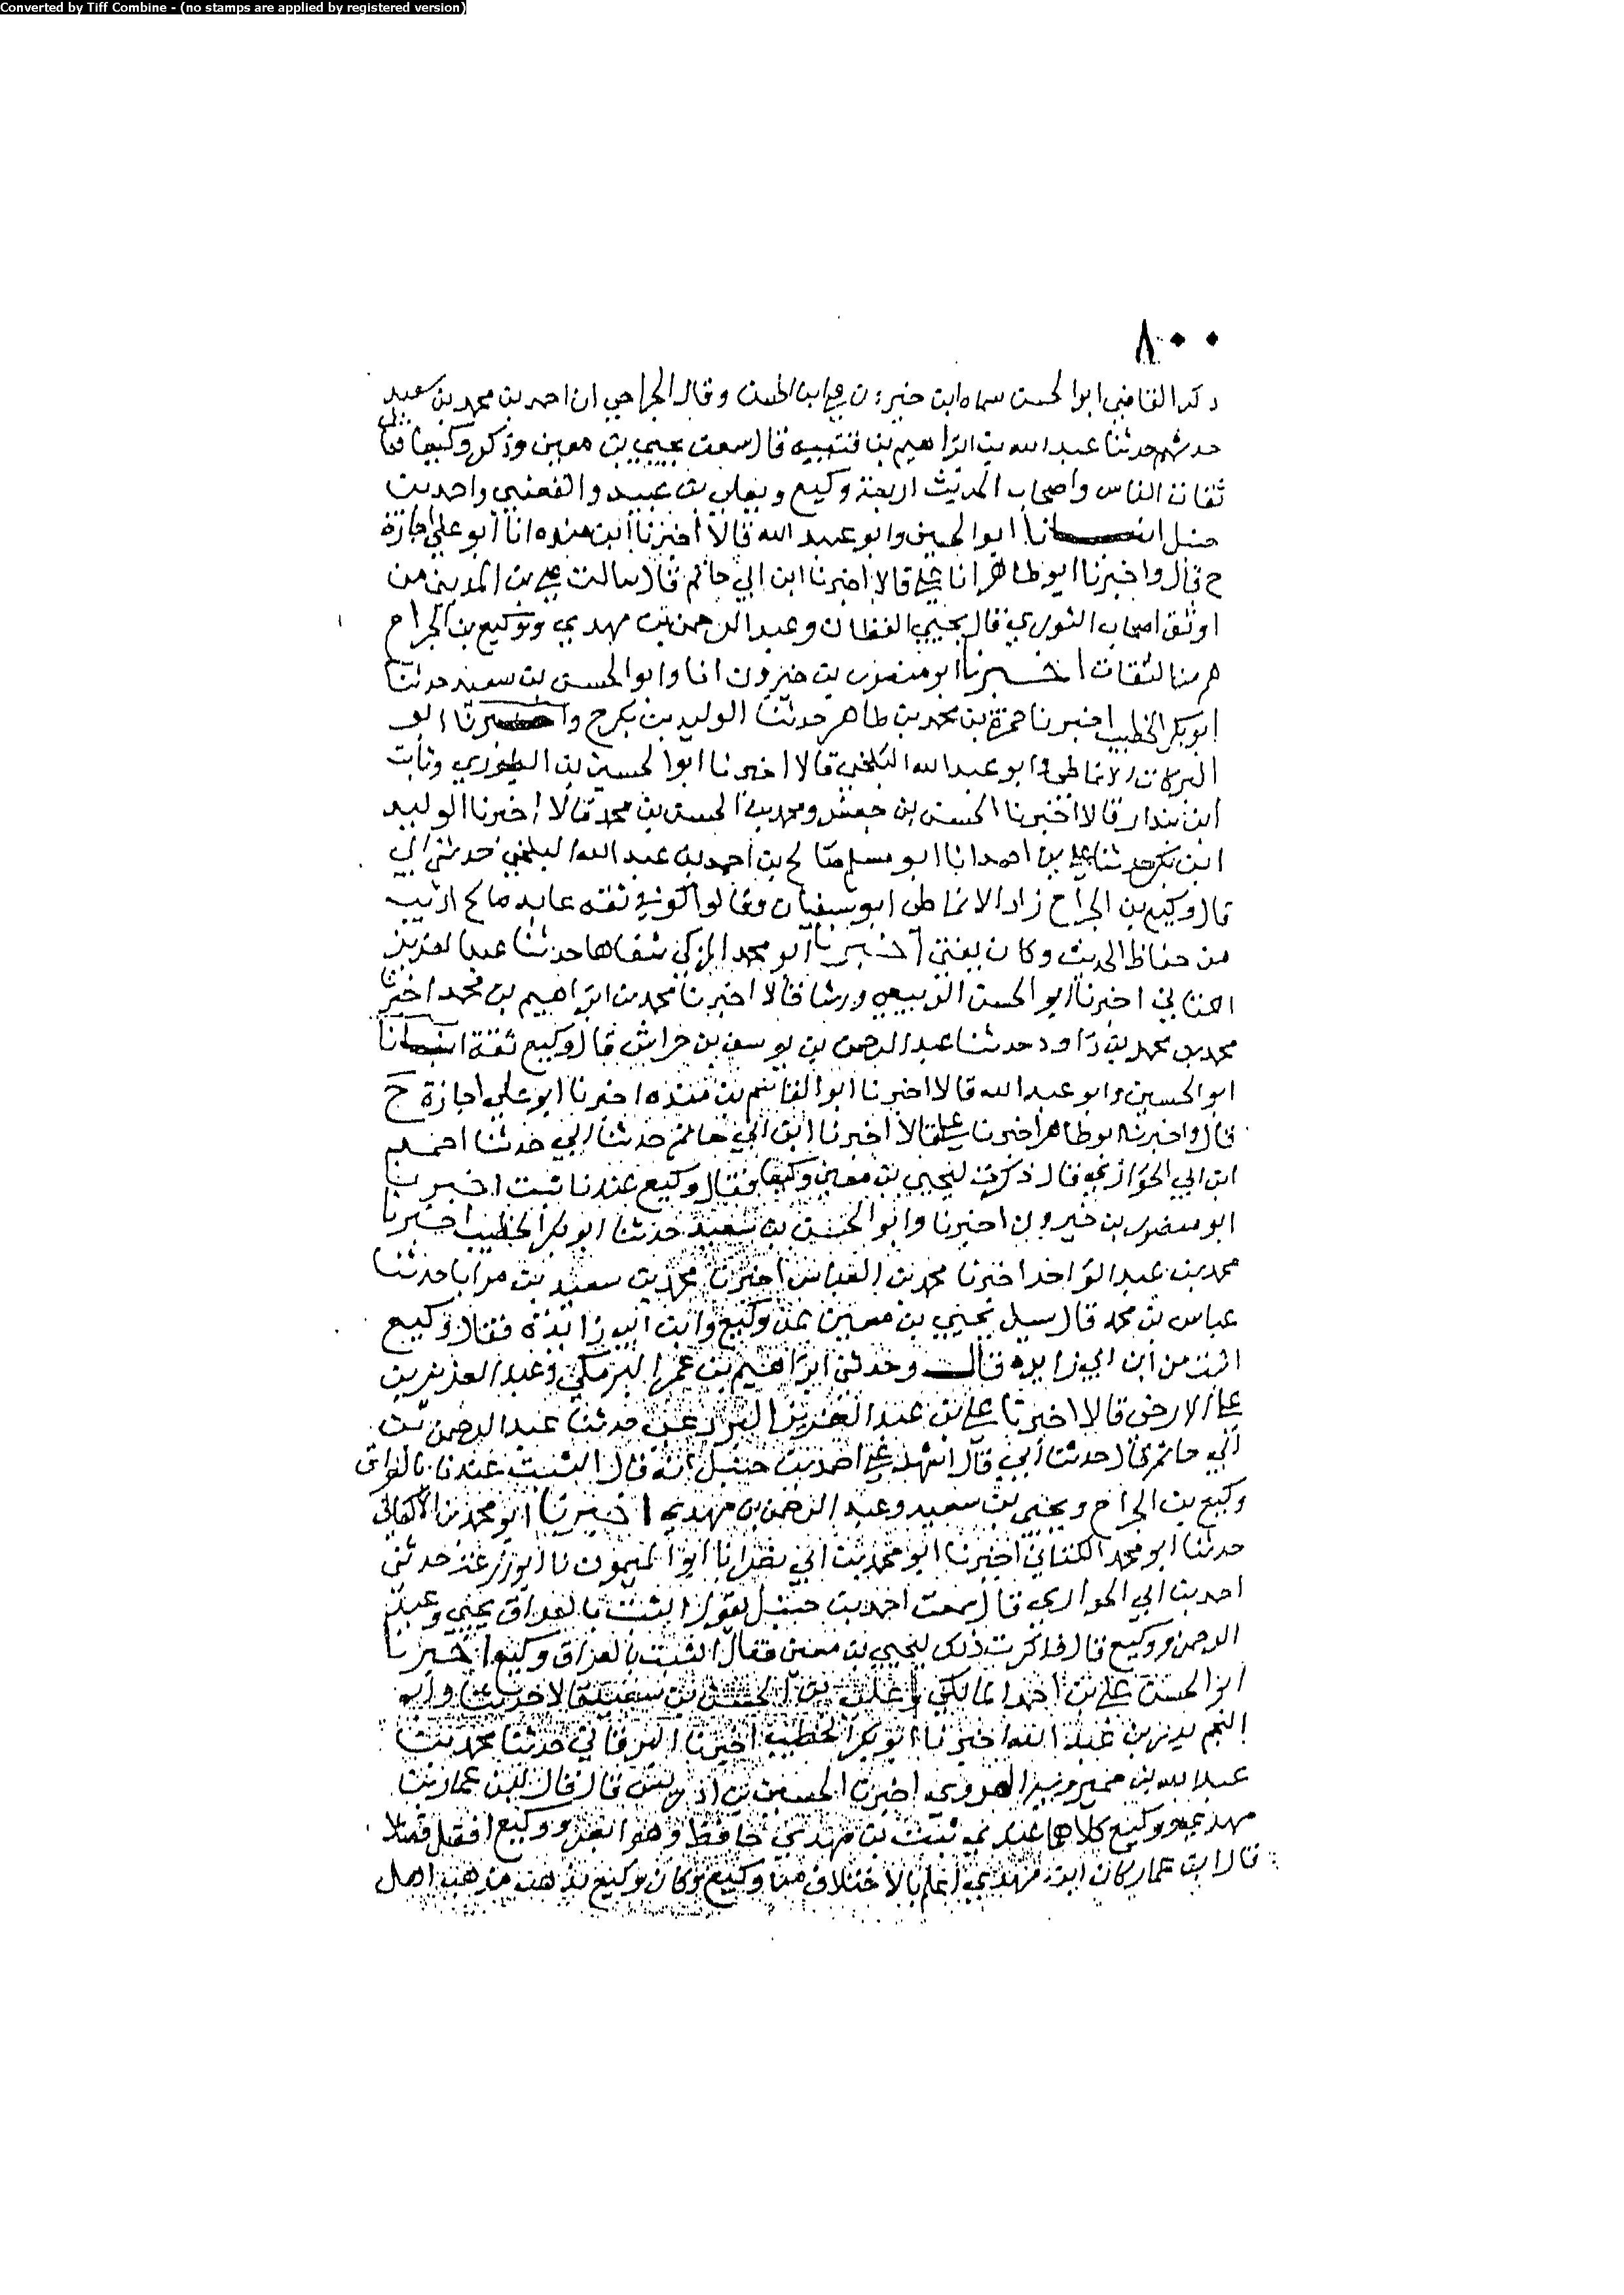 Converted by Tiff Combine - (no stamps are applied by registered version)
٨٠٠
القاضي ابو الحسن سماه ابن خيرون علي ابن الحسن وقال الجراحي ان احمد بن محمد بن سعيد
حدثهم حدثنا عبد الله بن ابراهيم بن قتيبه قال سمعت يحيي بن معين وذكر وكيعا فقال
ثقات الناس واصحاب الحديث اربعة وكيع ويعلي بن عبيد والقعنبي واحمد بن
حنبل انبانا ابو الحسين وابو عبد الله قالا أخبرنا ابن منده انا أبو علي اجازة
ح قال واخبرنا ابو طاهر انا علي قالا اخبرنا ابن ابي حاتم قال سالت علي بن المديني من
اوثق اصحاب الثوري قال يحيي القطان وعبد الرحمن بن مهدي ووكيع بن الجراح
من الثقات اخبرنا ابو منصور بن خيرون انا وابو الحسن بن سعيد حدثنا
ابو بكر الخطيب اخبرنا حمزة بن محمد بن طاهر حدثنا الوليد بن بكر ح واخبرنا ابو
البركات الانماطي وابو عبد الله البلخي قالا اخبرنا ابو الحسين بن الطيوري وثابت
ابن بندار قالا اخبرنا الحسين بن جعفر ومحمد بن الحسن بن محمد قالا اخبرنا الوليد
ابن بكر حدثنا علي بن احمد انا ابو مسلم صالح بن أحمد بن عبد الله البلخي حدثني ابي
قال وكيع بن الجراح زاد الانماطي ابو سفيان وقالوا كوفي ثقه عابد صالح اديب
من حفاظ الحديث وكان يفتي اخبرنا ابو محمد المزكي شفاها حدثنا عبد العزيز
الكتاني اخبرنا ابو الحسن الربيعي ورشا قالا اخبرنا محمد بن ابراهيم بن محمد اخبرنا
محمد بن محمد بن داود حدثنا عبد الرحمن بن يوسف بن خراش قال وكيع ثقة انبانا
ابو الحسين وابو عبد الله قالا اخبرنا ابو القاسم بن منده اخبرنا ابو علي اجازة ح
قال واخبرنا ابو طاهر اخبرنا علي قالا اخبرنا ابن ابي حاتم حدثنا ابي حدثنا احمد
ابن ابي الحواري قال ذكرت ليحيي بن معين وكيعا فقال وكيع عندنا ثبت اخبرنا
ابو منصور بن خيرون اخبرنا وابو الحسن بن سعيد حدثنا ابو بكر الخطيب اخبرنا
محمد بن عبد الواحد اخبرنا محمد بن العباس اخبرنا محمد بن سعيد بن مرابا حدثنا
عباس بن محمد قال سيل يحيي بن معين عن وكيع وابن ابي زايدة فقال وكيع
اثبت من ابن ابي زايده قال وحدثني ابراهيم بن عمر البرمكي وعبد العزيز بن
علي الارجي قالا اخبرنا علي بن عبد العزيز البردعي حدثنا عبد الرحمن بن
أبي حاتم قال حدثنا أبي قال اشهد علي احمد بن حنبل انه قال الثبت عندنا بالعراق
وكيع بن الجراح ويحيي بن سعيد وعبد الرحمن بن مهدي اخبرنا ابو محمد بن الأكفاني
حدثنا ابو محمد الكتاني اخبرنا ابو محمد بن ابي نصر انا ابو الميمون نا ابو زرعة حدثني
احمد بن ابي الحواري قال سمعت احمد بن حنبل يقول الثبت بالعراق يحيي وعبد
الرحمن ووكيع قال فذكرت ذلك ليحيي بن معين فقال الثبت بالعراق وكيع اخبرنا
ابو الحسن علي بن احمد المالكي وعلي بن الحسن بن سعيد قالا حدثنا وابو
النجم بدر بن عبد الله اخبرنا ابو بكر الخطيب اخبرنا البرقاني حدثنا محمد بن
عبد الله بن خميرويه الهروي اخبرنا الحسين بن ادريس قال قال ابن عمار بن
مهدي ووكيع كلاهما عندي ثبت بن مهدي حافظ وهو ابصر ووكيع افضل فضلا
قال ابن عمار كان ابن مهدي اعلم بالاختلاف من وكيع وكان وكيع يذهب مذهب اهل